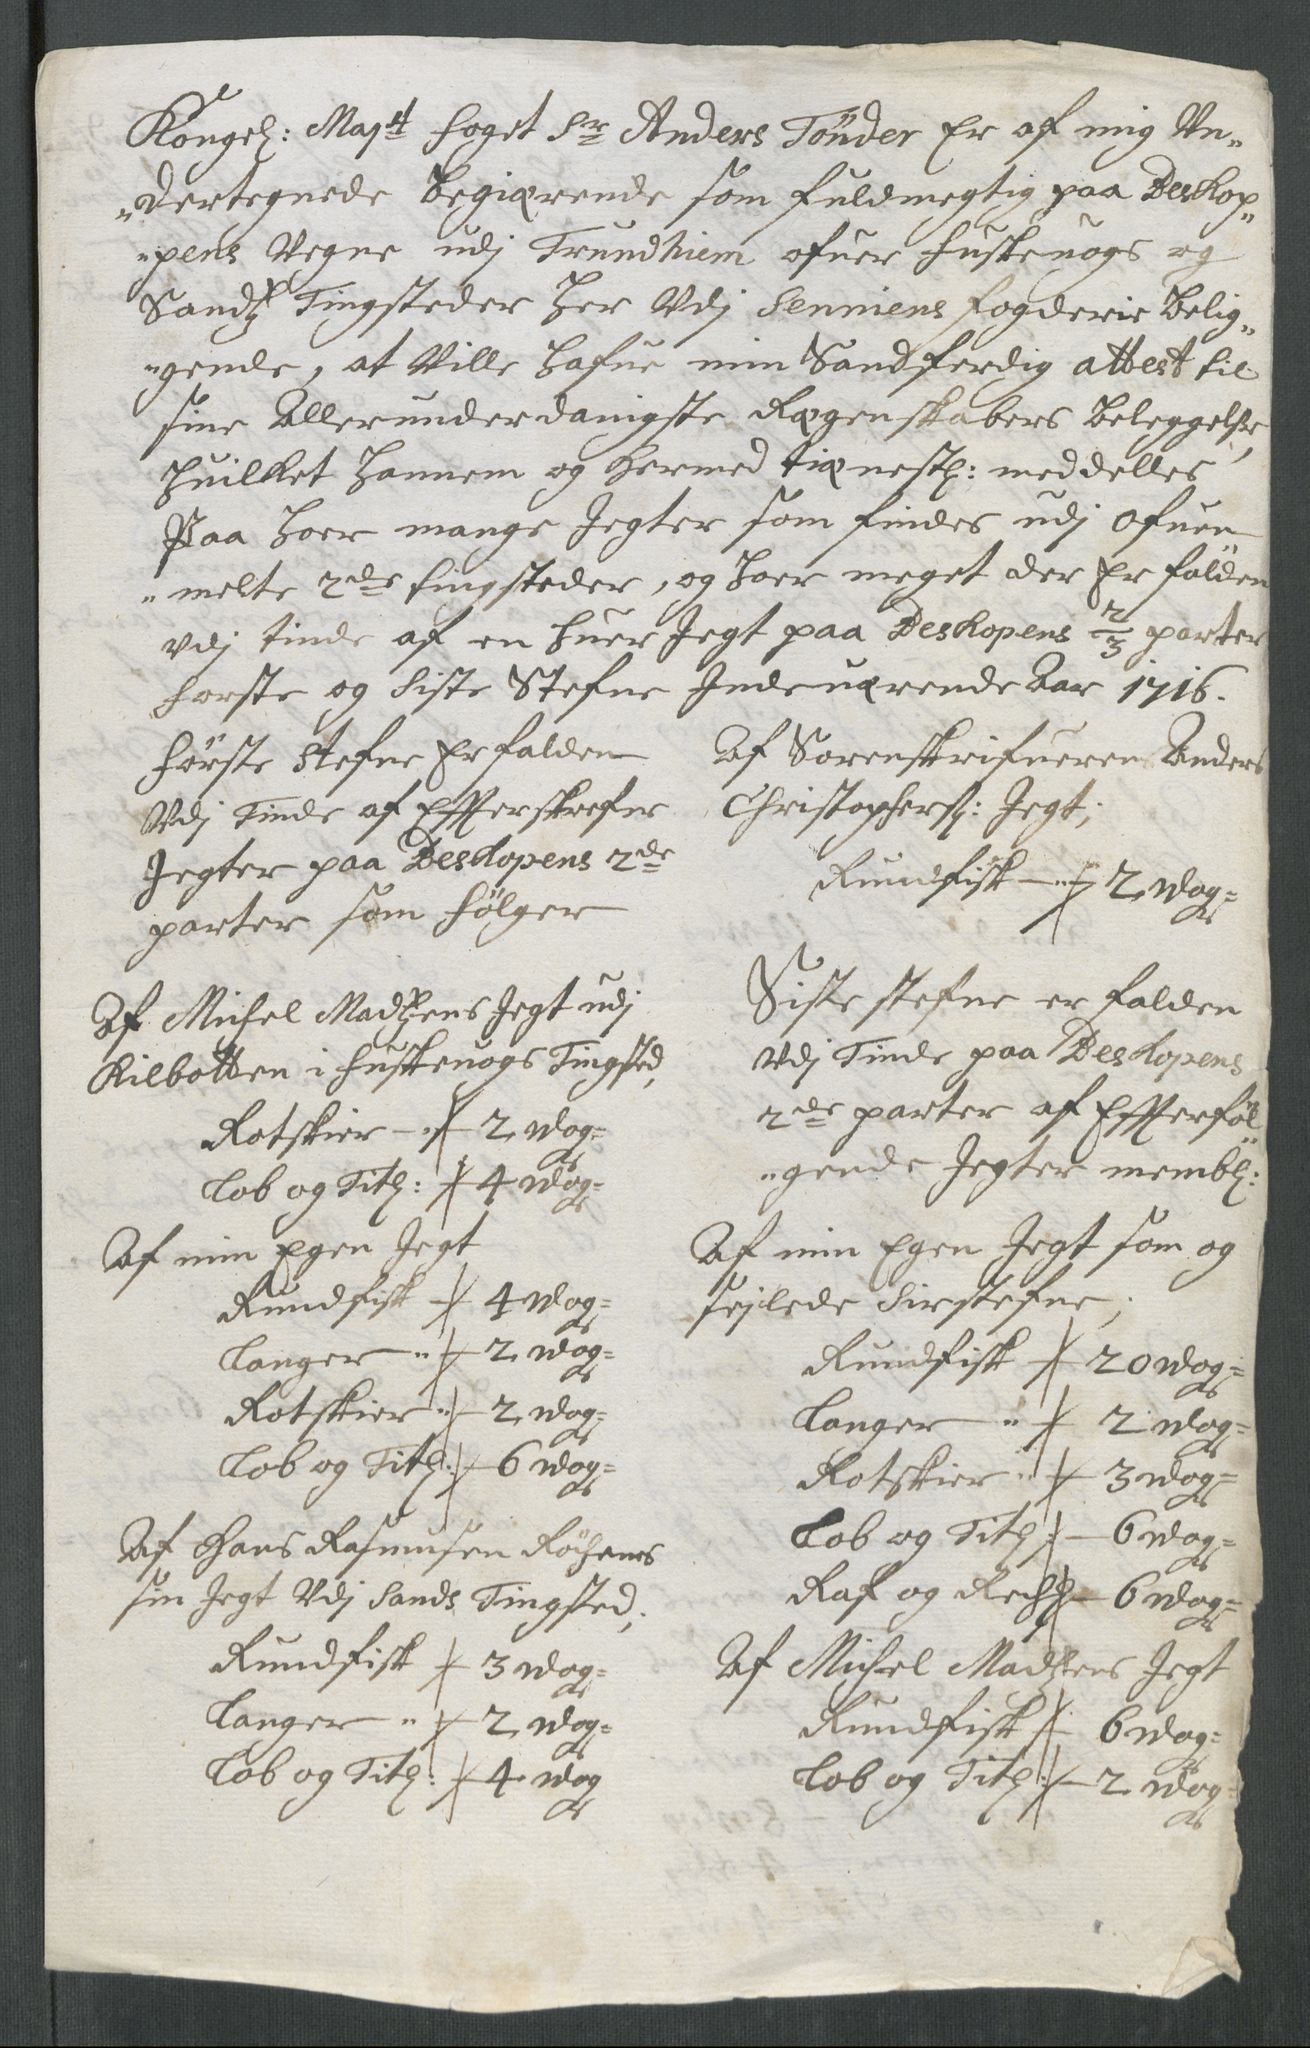 Kongel: Majtt foget Sr Anders Tönder Er af mig Un„
„dertegnede Begiærende som fuldmegtig paa Beskop„
„pens Vegne udj Trundhiem ofuer huskeuogs og
Sandtz Tingsteder her Udj Senniens fogderie Belig„
„gende, at Ville hafue min Sandferdig attest til
sine Allerunderdanigste Rægenskabers Beleggelse,
huilket hannem og hermed tiænestl: meddelles
Paa hoer mange Jegter som findes udj ofuen
„melte 2de tingsteder, og hoer meget der Er falden
udj tinde af en huer Jegt paa Beskopens 2/3 parter
forste og Siste Stefne Indeuærende Aar 1716.
förste stefne Er falden
Udj Tinde af Effterskrefne
Jegter paa Beskopens 2de
parter som fölger
Af Michel Madtzens Jegt udj
Kilbotten i huskeuogs Tingsted,
Rotskier — 2 wog=
Lob og Titl: 4 wog=
Af min Egen Jegt
Rundfisk — 4 wog=
Langer „ — 2 wog=
Rotskier „ — 2 wog=
Lob og Titl: — 6 wog=
Af Hans Rasmusen Röchenes
sin Jegt Udj Sands Tingsted,
Rundfisk — 3 wog=
Langer „ — 2 wog=
Lob og Titl: — 4 wog
Af Sorenskrifueren Anders
Christophers: Jegt;
Rundfisk — 2 wog=
Siste stefne er falden
Udj Tinde paa Beskopens
2de parter af Effterföl„
„gende Jegter nembl:
Af min Egen Jegt som og
sejlede Sirstefne;
Rundfisk — 20 wog=
Langer „ — 2 wog=
Rotskier „ — 3 wog=
Lob og Titl: — 6 wog=
Raf og Rech — 6 wog=
Af Michel Madtzens Jegt
Rundfisk — 6 wog=
Lob og Titl: — 2 wog=